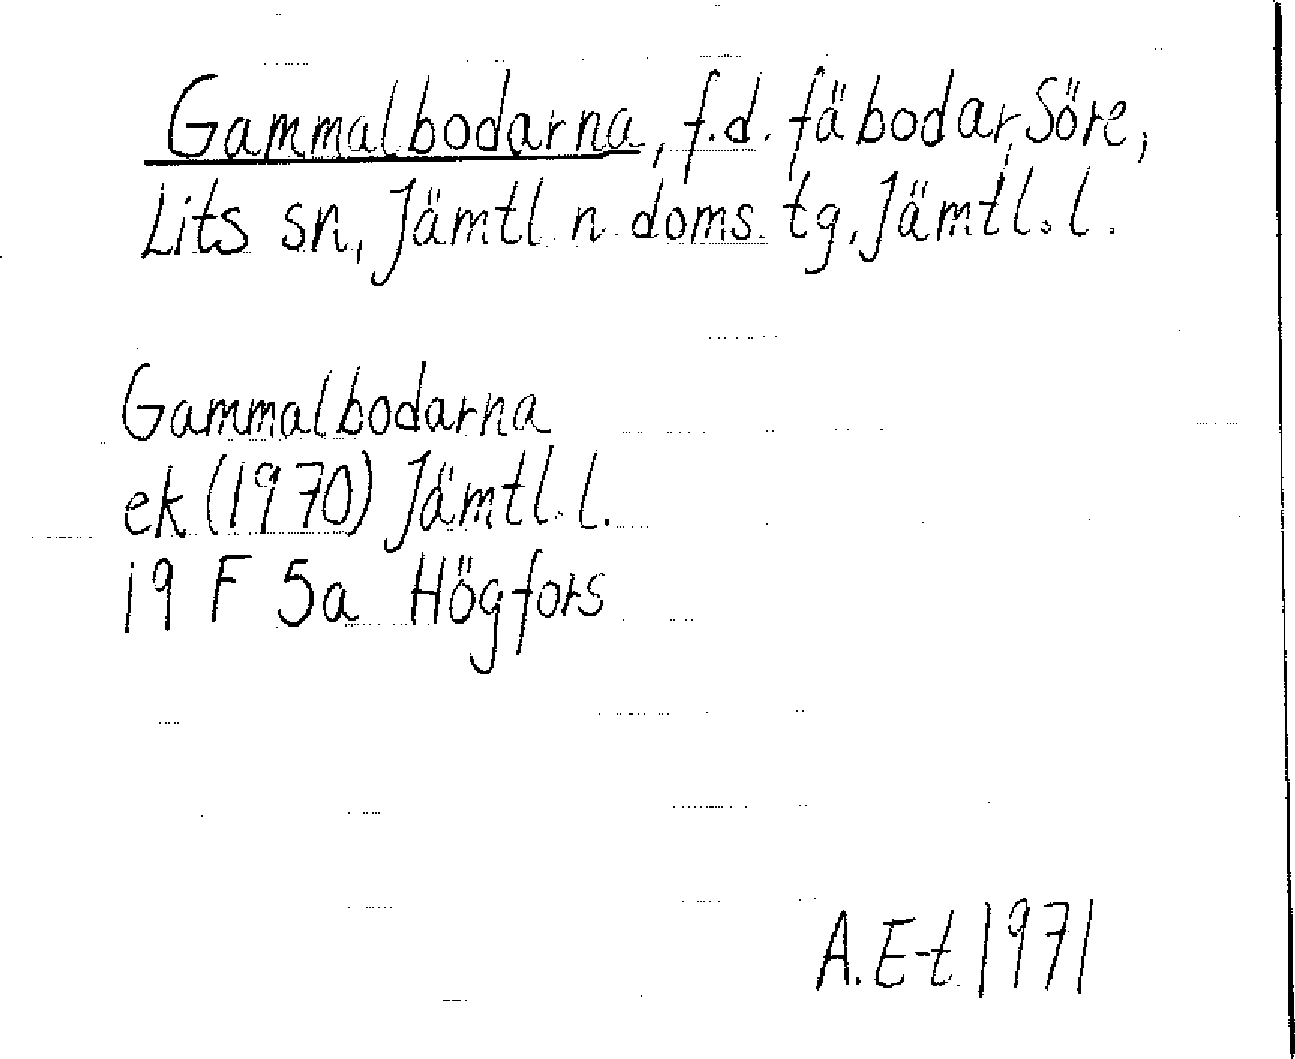 Gammalbodarna, f.d. fäbodar, Söre,
Lits sn, Jämtl n doms. tg, Jämtl.l.
Gammalbodarna
ek (1970) Jämtl.l.
19 F 5a Högfors
A.E-t 1971